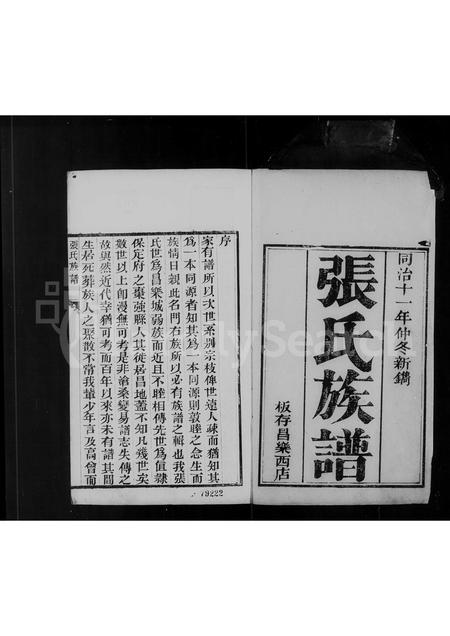 同治十一年仲冬新鐫
張氏族譜
板存昌樂西店
序
家有譜所以次世系別宗枝傳世遠人疎而猶知其
為一本同源者知其為一本同源則敦睦之念生而
族情日親此名門右族所以必有族譜之輯也我張
氏世為昌樂城弱族而近且不睦相傳先世為直隸
保定府之棗強縣人其徙居昌地蓋不知凡幾世矣
數世以上聞漫無可考是非滄桑變易譜志失傳之
故與然近代幸猶可考而百年以來亦未有譜其間
生居死葬族人之聚散不常我輩少年言及高曾而
張氏族譜
79222
MySearch